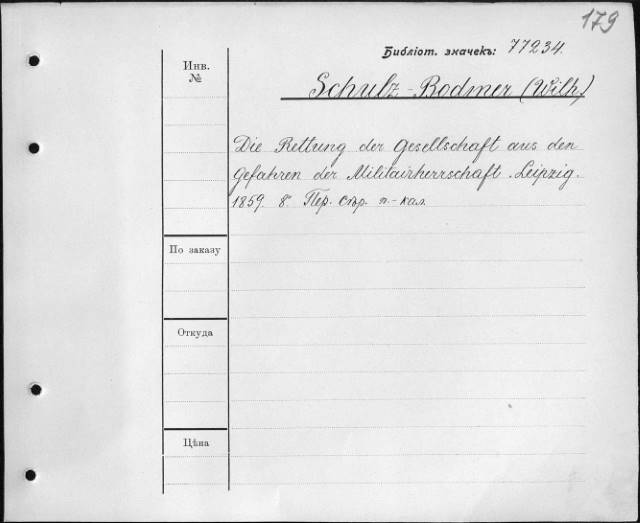 179
Библіот. значекъ: 77234.
Инв. №
Schulz-Bodmer (Wilh.)
Die Rettung der Gesellschaft aus den
Gefahren der Militairherrschaft. Leipzig.
1859. 8°. Пер. сѣр. п.-кал.
По заказу
Откуда
Цѣна